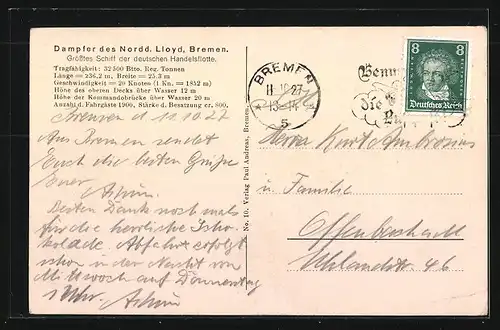 Dampfer des Nordd. Lloyd, Bremen.
Größtes Schiff der deutschen Handelsflotte.
Tragfähigkeit: 32 500 Btto. Reg. Tonnen
Länge = 236,2 m, Breite = 25,3 m
Geschwindigkeit = 20 Knoten (1 Kn. = 1852 m)
Höhe des oberen Decks über Wasser 12 m
Höhe der Kommandobrücke über Wasser 20 m
Anzahl d. Fahrgäste 1900, Stärke d. Besatzung cr. 800.
Bremen d. 11.10.27
Aus Bremen sendet
Euch die besten Grüße
Euer
Besten Dank nochmals
für die herrliche Scho-
kolade. Abfahrt erfolgt
schon in der Nacht von
Mittwoch auf Donnerstag
1 Uhr.
No. 10. Verlag Paul Andreas, Bremen.
BREMEN
11.10.27
13-14
5
Benu
die
8 8
Deutsches Reich
Herrn Kurt Ambrosius
u. Familie
Offenbach a/M
Uhlandstr. 46